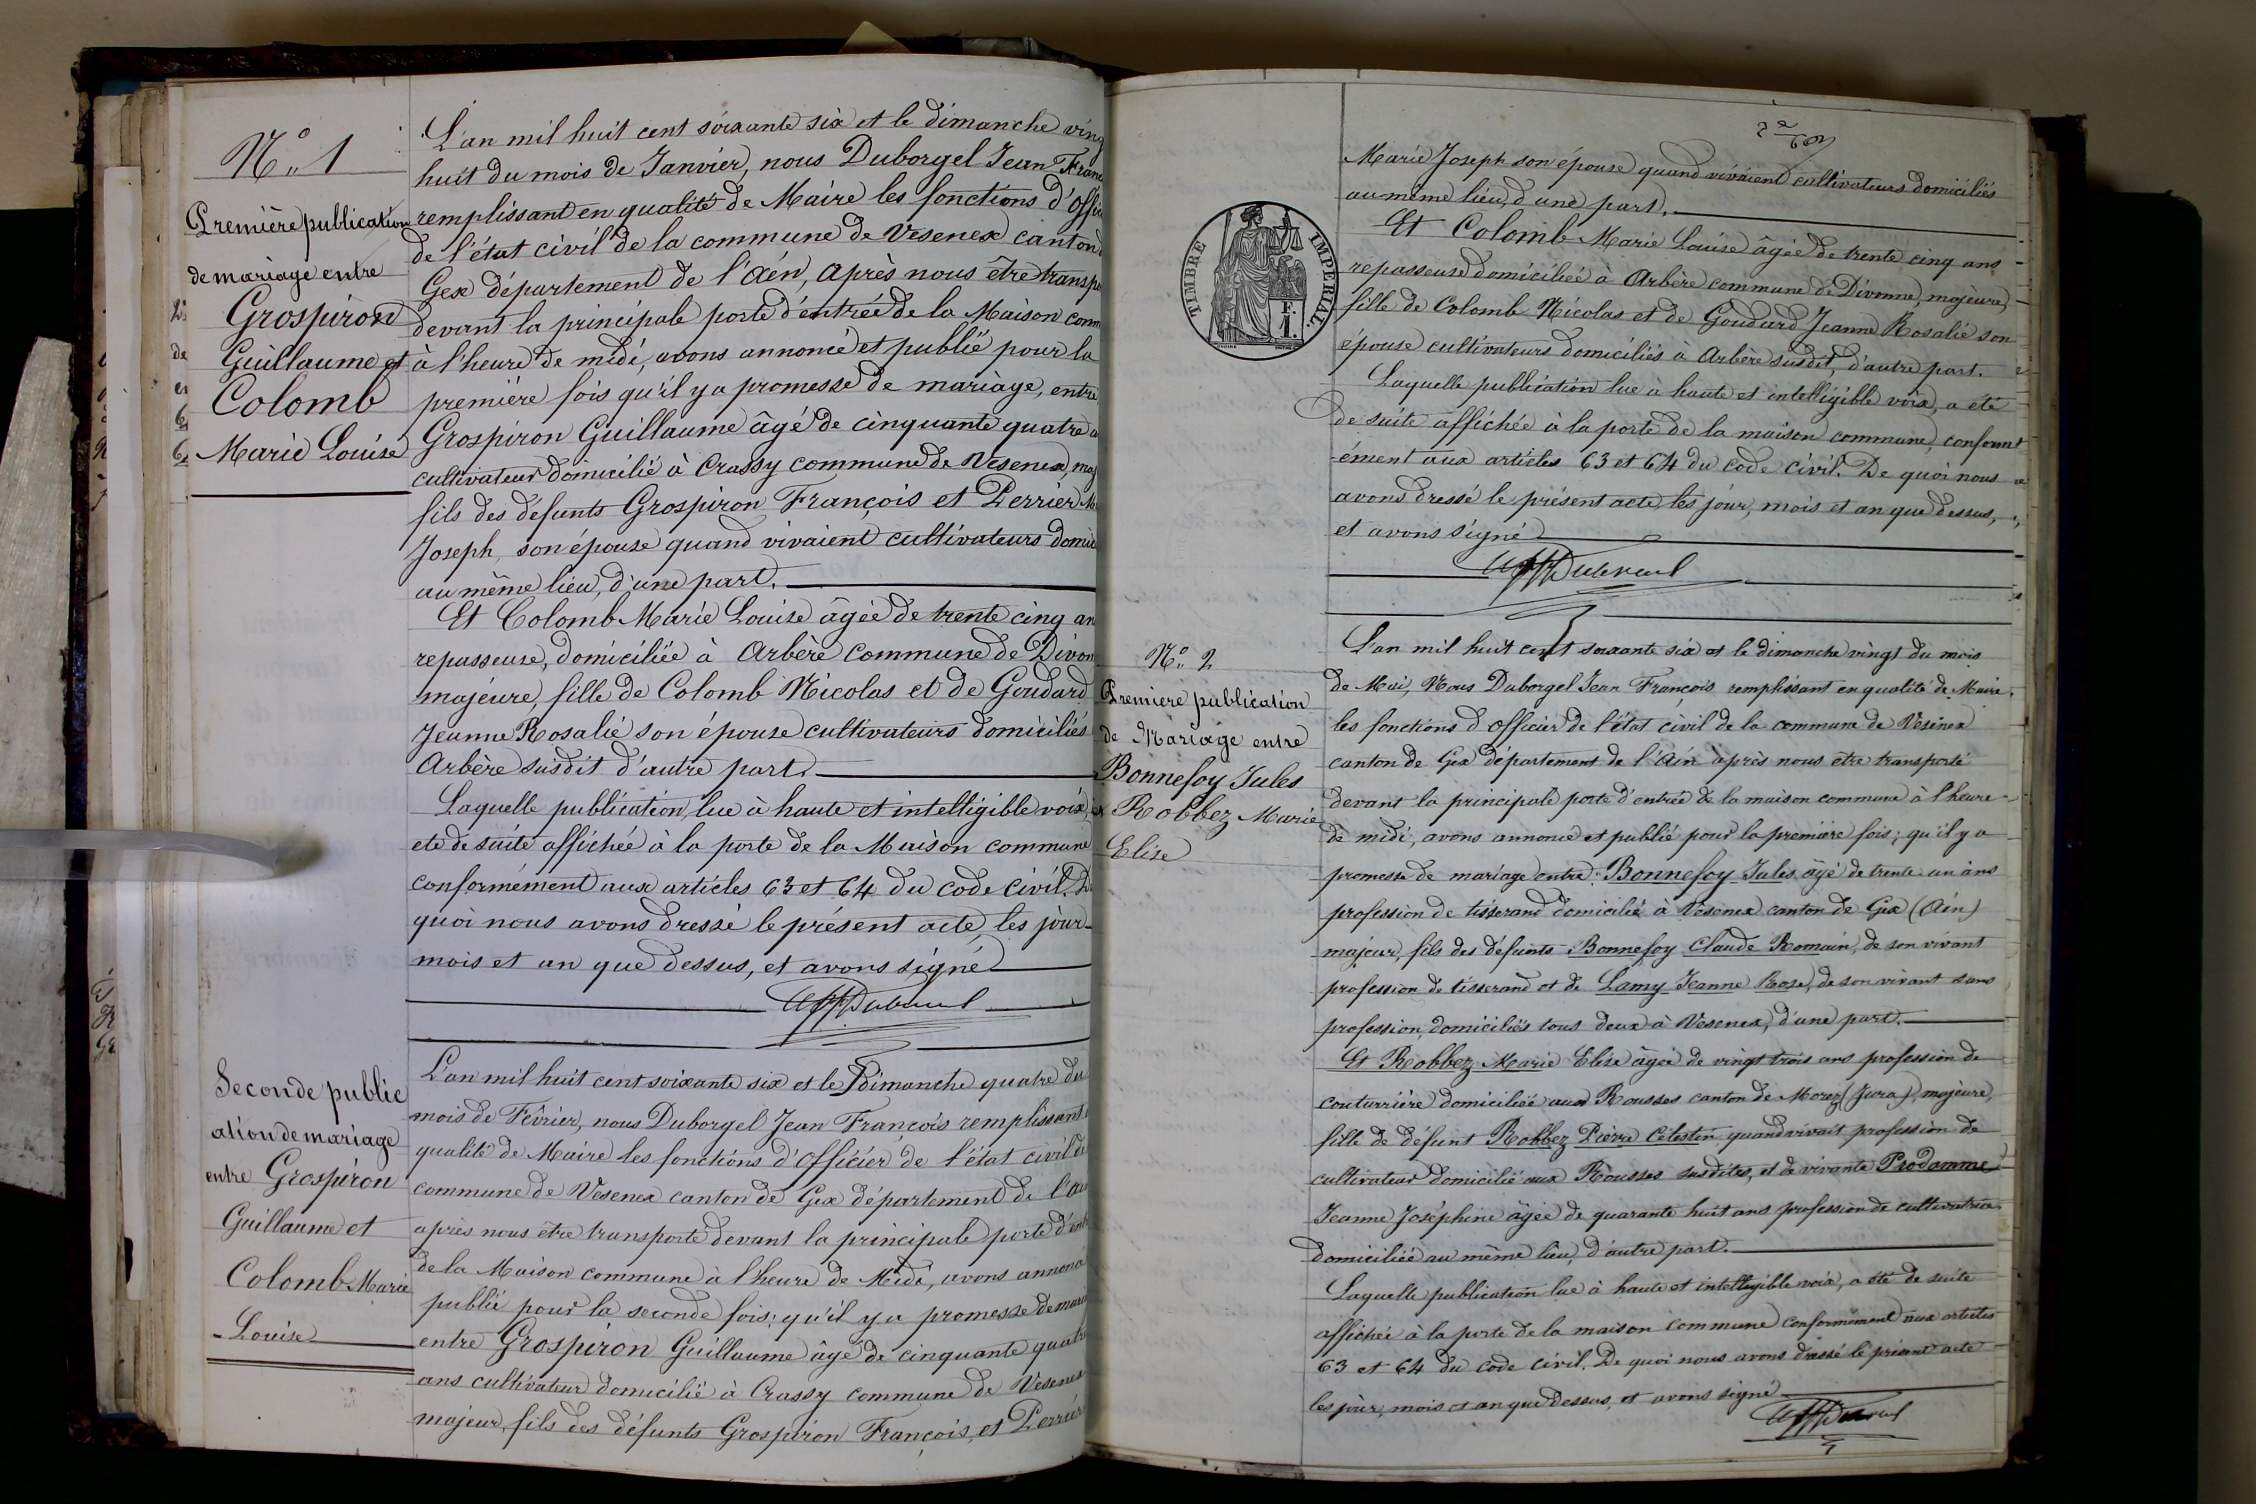 N° 1
Première publication
de mariage entre
Grospiron
Guillaume et
Colomb
Marie Louise
L'an mil huit cent soixante six et le dimanche ving
huit du mois de Janvier, nous Duborgel Jean Fran
remplissant en qualité de Maire les fonctions d'offi
de l'état civil de la commune de Vesenex canton
Gex département de l'Ain, après nous être transp
devant la principale porte d'entrée de la Maison com
à l'heure de midi, avons annoncé et publié pour la
première fois qu'il y a promesse de mariage, entre
Grospiron Guillaume âgé de cinquante quatre a
cultivateur domicilié à Crassy commune de Vesenex, maj
fils des défunts Grospiron François et Perrier M
Joseph, son épouse quand vivaient cultivateurs domic
au même lieu, d'une part.
Et Colomb Marie Louise âgée de trente cinq an
repasseuse, domiciliée à Arbère commune de Divon
majeure, fille de Colomb Nicolas et de Goudard
Jeanne Rosalie son épouse cultivateurs domiciliés
Arbère susdit d'autre part.
Laquelle publication, lue à haute et intelligible voix,
été de suite affichée à la porte de la Maison commune
conformément aux articles 63 et 64 du code civil. D
quoi nous avons dressé le présent acte, les jour
mois et an que dessus, et avons signé
Seconde public
ation de mariage
entre Grospiron
Guillaume et
Colomb Marie
Louise
L'an mil huit cent soixante six et le dimanche quatre du
mois de Février, nous Duborgel Jean François remplissant
qualité de Maire les fonctions d'officier de l'état civil de
commune de Vesenex canton de Gex département de l'Ai
après nous être transporté devant la principale porte d'ent
de la Maison commune à l'heure de Midi, avons annoncé
publié pour la seconde fois; qu'il y a promesse de mari
entre Grospiron Guillaume âgé de cinquante quatre
ans cultivateur domicilié à Crassy commune de Vesenex
majeur, fils des défunts Grospiron François, et Perrier
TIMBRE IMPERIAL
Marie Joseph son épouse quand vivaient cultivateurs domiciliés
au même lieu, d'une part.
Et Colomb Marie Louise âgée de trente cinq ans
repasseuse domiciliée à Arbère commune de Divonne, majeure,
fille de Colomb Nicolas et de Goudard Jeanne Rosalie son
épouse cultivateurs domiciliés à Arbère susdit, d'autre part.
Laquelle publication lue à haute et intelligible voix, a été
de suite affichée à la porte de la maison commune, conform
ément aux articles 63 et 64 du code civil. De quoi nous
avons dressé le présent acte, les jour, mois et an que dessus,
et avons signé
N° 2
Première publication
de Mariage entre
Bonnefoy Jules
et Robbez Marie
Elise
L'an mil huit cent soixante six et le dimanche vingt du mois
de Mai, Nous Duborgel Jean François remplissant en qualité de Maire
les fonctions d'officier de l'état civil de la commune de Vesenex
canton de Gex département de l'Ain après nous être transporté
devant la principale porte d'entrée de la maison commune à l'heure
de midi, avons annoncé et publié pour la première fois; qu'il y a
promesse de mariage entre Bonnefoy Jules âgé de trente un ans
profession de tisserand domicilié à Vesenex canton de Gex (Ain)
majeur, fils des défunts Bonnefoy Claude Romain, de son vivant
profession de tisserand et de Lamy Jeanne Rose, de son vivant sans
profession, domiciliés tous deux à Vesenex, d'une part.
Et Robbez Marie Elise âgée de vingt trois ans profession de
couturrière domiciliée aux Rousses canton de Morez (Jura), majeure,
fille de défunt Robbez Pierre Célestin quand vivait profession de
cultivateur domicilié aux Rousses susdites, et de vivante Prodamme
Jeanne Joséphine âgée de quarante huit ans profession de cultivatrice
domiciliée au même lieu, d'autre part.
Laquelle publication lue à haute et intelligible voix, a été de suite
affichée à la porte de la maison commune conformément aux articles
63 et 64 du code civil. De quoi nous avons dressé le présent acte
les jour, mois et an que dessus, et avons signé